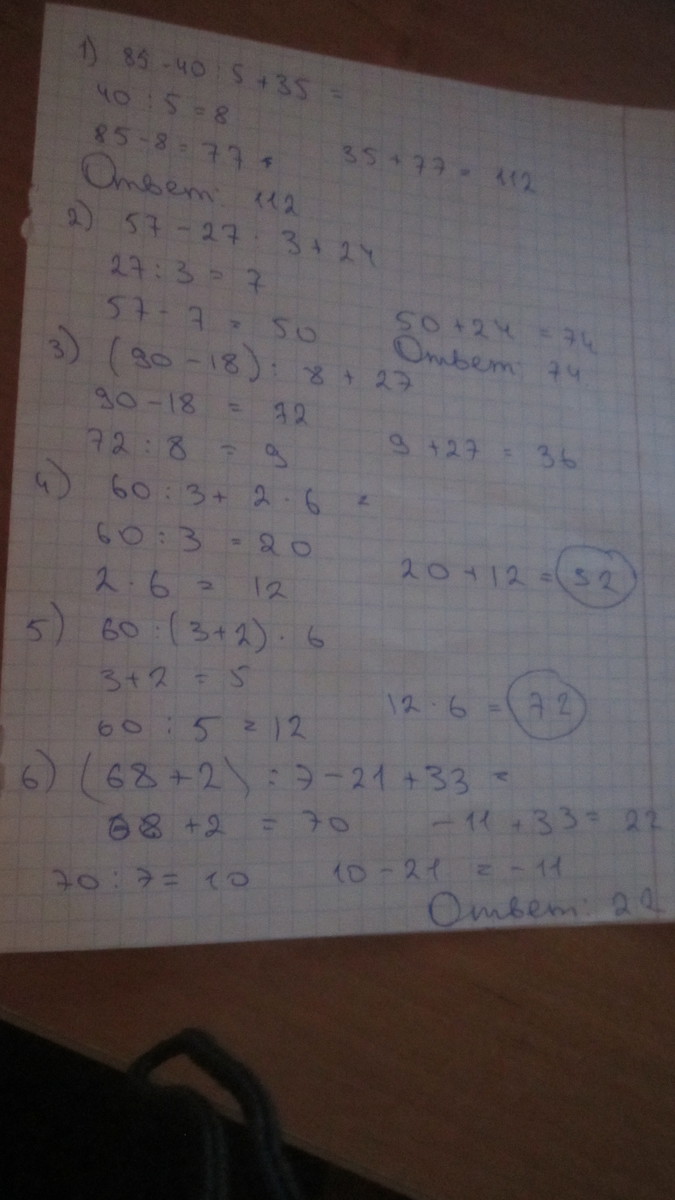 1) 85 - 40 : 5 + 35 =
40 : 5 = 8
85 - 8 = 77 35 + 77 = 112
Ответ: 112
2) 57 - 27 : 3 + 24
27 : 3 = 7
57 - 7 = 50 50 + 24 = 74
Ответ: 74
3) (90 - 18) : 8 + 27
90 - 18 = 72
72 : 8 = 9 9 + 27 = 36
4) 60 : 3 + 2 · 6 =
60 : 3 = 20
2 · 6 = 12 20 + 12 = 32
5) 60 : (3 + 2) · 6
3 + 2 = 5
60 : 5 = 12 12 · 6 = 72
6) (68 + 2) : 7 - 21 + 33 =
68 + 2 = 70 -11 + 33 = 22
70 : 7 = 10 10 - 21 = -11
Ответ: 22